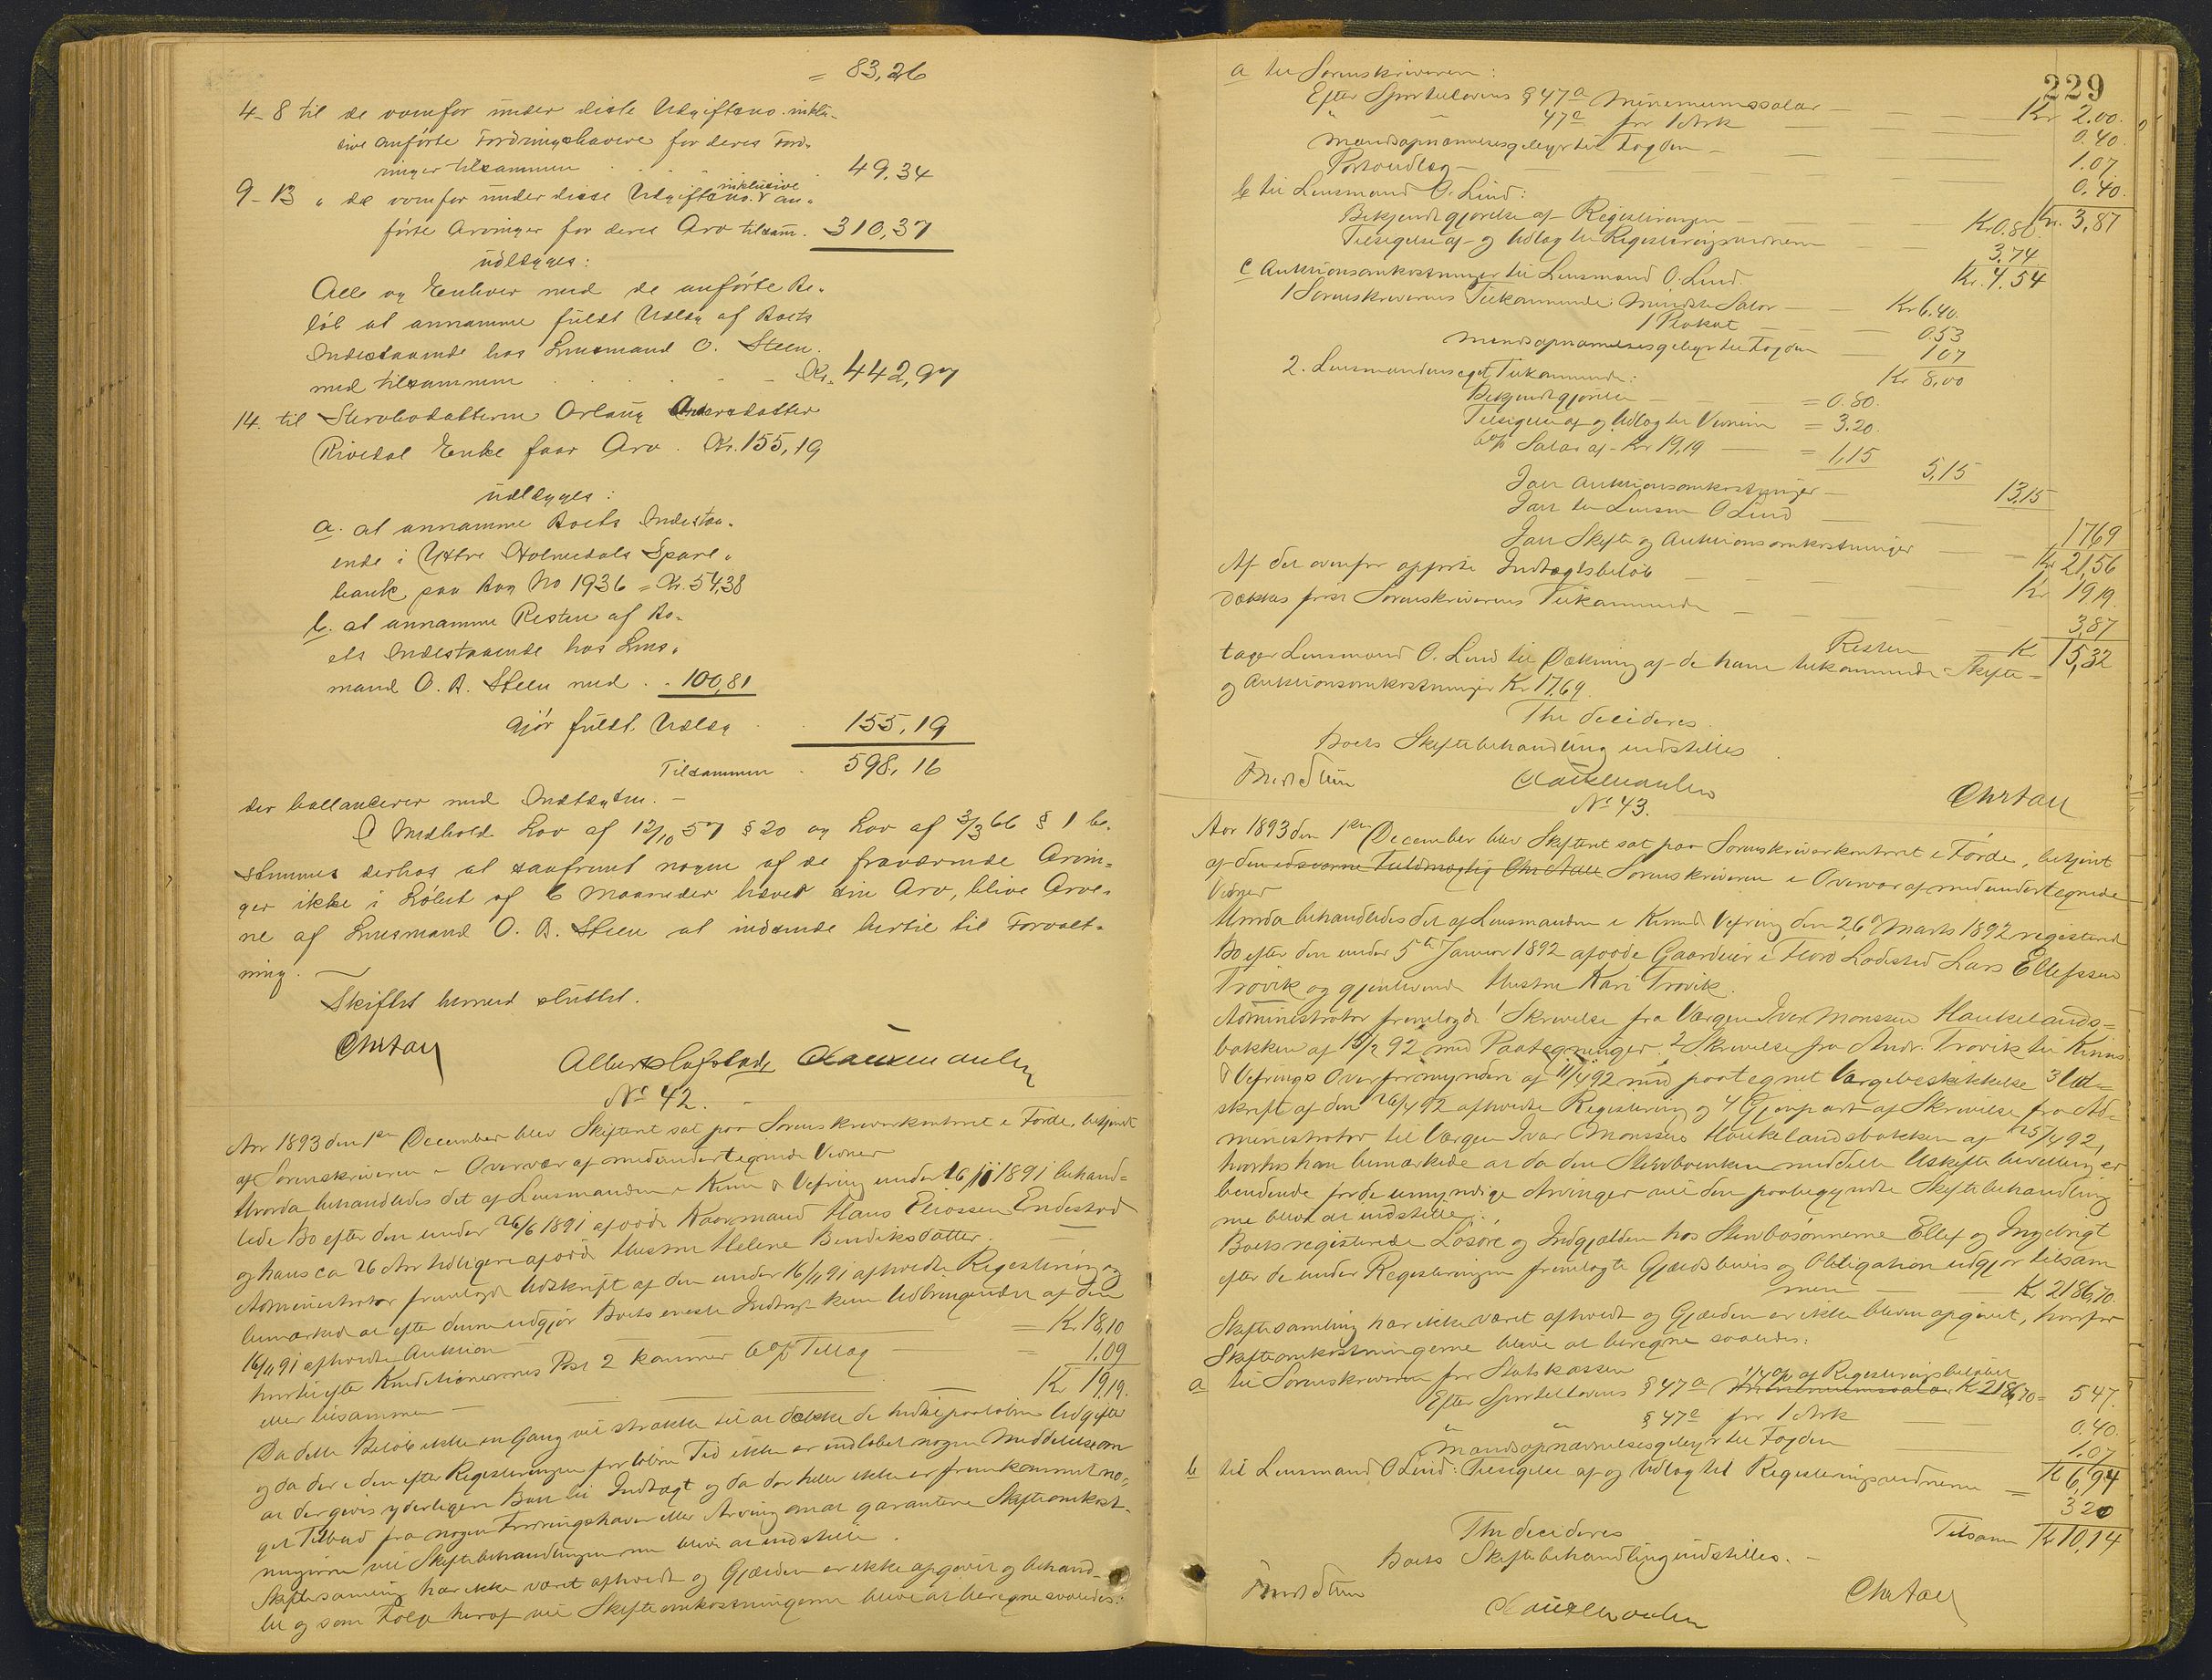 = 83,26
4-8 til de ovenfor under disse Udgiftsno. inklu-
sive anførte Fordringshavere for deres Ford-
ringer tilsammen . . . . 49,34
9-13 " de ovenfor under disse Udgiftsno. inklusive an-
førte Arvinger for deres Arv tilsam. 310,37
udlægges:
Alle og Enhver med de anførte Be-
løb at annamme fuldt Udlæg af Boets
Indestaaende hos Lensmand O. Steen
med tilsammen . . . . Kr. 442,97
14. til Stervbodatteren Orlaug Andersdatter
Rivedal Enke faar Arv . Kr. 155,19
udlægges:
a. at annamme Boets Indestaa-
ende i Ytre Holmedals Spare-
bank paa Bog No 1936 = Kr. 54,38
b. at annamme Resten af Bo-
ets Indestaaende hos Lens-
mand O. A. Steen med . . 100,81
gjør fuldt Udlæg . . 155,19
Tilsammen . 598,16
der ballancerer med Indtægten. -
I Medhold Lov af 12/10 57 § 20 og Lov af 3/3 66 § 1 be-
stemmes derhos at saafremt nogen af de fraværende Arvin-
ger ikke i Løbet af 6 Maaneder hæver sin Arv, blive Arve-
ne af Lensmand O. A. Steen at indsende hertil til Forvalt-
ning.
Skiftet hermed sluttet.
Chr Tau
Albert Hofstad Claus Maulen
No 42.
Aar 1893 den 1ste December blev Skifteret sat paa Sorenskriverkontoret i Førde, betjent
af Sorenskriveren i Overvær af medundertegnede Vidner
Hvorda behandledes det af Lensmanden i Kinn & Vefring under 16/11 1891 behand-
lede Bo efter den under 26/6 1891 afdøde Kaarmand Hans Eliassen Endestad
og hans ca 26 Aar tidligere afdøde Hustru Helene Bendiksdatter.
Administrator fremlagde Udskrift af den under 16/11 91 afholdte Registrering og
bemærkede at efter denne udgjør Boets eneste Indtægt kun Udbringendet af den
16/11 91 afholdte Auktion = Kr 18,10
hvortil efter Konditionernes Post 2 kommer 6 % Tillæg = 1.09
eller tilsammen — Kr 19,19.
Da dette Beløb ikke en Gang vil strække til at dække de hidtil paaløbne Udgifter
og da der i den efter Registreringen forløbne Tid ikke er indløbet nogen Meddelelse om
at der gives yderligere Boet til Indtægt og da der heller ikke er fremkommet no-
get Tilbud fra nogen Fordringshaver eller Arving om at garantere Skifteomkost-
ningerne vil Skiftebehandlingen nu blive at indstille.
Skiftesamling har ikke været afholdt og Gjælden er ikke opgivet og behand-
let og som Følge heraf vil Skifteomkostningerne blive at beregne saaledes:
229
a til Sorenskriveren:
Efter Sportellovens § 47a Minimumssalær — Kr 2.00.
" " 47e for 1 Ark — 0.40
Mandsopnævnelsesgebyr til Fogden — 1.07
Portoudlæg — 0.40.
Kr. 3,87
b til Lensmand O. Lind:
Bekjendtgjørelse af Registreringen — Kr 0.80.
Tilsigelse af og Udlæg til Registreringsvidnerne 3,74
Kr. 4,54
c Auktionsomkostninger til Lensmand O. Lind.
1 Sorenskriverens Tilkommende: Mindste Salær — Kr 6.40.
1 Plakat — 0.53
Mandsopnævnelsesgebyr til Fogden 1 07
Kr 8,00
2. Lensmandens eget Tilkommende:
Bekjendtgjørelse — = 0.80.
Tilsigelse af og Udlæg til Vidnerne = 3.20.
6 % Salær af Kr 19,19 — = 1,15 5,15
Jalt Auktionsomkostninger — 13,15
Jalt til Lensm O Lind — 17 69
Jalt Skifte og Auktionsomkostninger — Kr 21,56
Af det ovenfor opførte Indtægtsbeløb — Kr 19 19.
dækkes først Sorenskriverens Tilkommende — 3,87
Resten Kr 15,32
tager Lensmand O. Lind til Dækning af de ham tilkommende Skifte-
og Auktionsomkostninger Kr 17,69.
Thi decideres.
Boets Skiftebehandling indstilles
Claus Maulen
Chr Tau
No 43.
Aar 1893 den 1ste December blev Skifteret sat paa Sorenskriverkontoret i Førde, betjent
af den edsvorne Fuldmægtig Chr Tau Sorenskriveren i Overvær af medundertegnede
Vidner
Hvorda behandledes det af Lensmanden i Kinn & Vefring den 26 Marts 1892 registrerede
Bo efter den under 5te Januar 1892 afdøde Gaardeier i Florø Ladested Lars Ellefssen
Trovik og gjenlevende Hustru Kari Trovik.
Administrator fremlagde 1 Skrivelse fra Værgen Iver Monssen Haukelands-
bakken af 15/2 92 med Paategninger, 2 Skrivelse fra Andr. Trovik til Kinns
& Vefrings Overformynderi af 11/4 92 med paategnet Værgebeskikkelse 3 Ud-
skrift af den 26/4 92 afholdte Registrering og 4 Gjenpart af Skrivelse fra Ad-
ministrator til Værgen Ivar Monssen Haukelandsbakken af 25/4 92,
hvorhos han bemærkede at da den Stervboenken meddelte Uskifte bevilling er
bindende for de umyndige Arvinger vil den paabegyndte Skiftebehandling
nu blive at indstille.
Boets registrerede Løsøre og Indgjælden hos Stervbosønnerne Ellef og Ingebrigt
efter de under Registreringen fremlagte Gjældsbevis og Obligation udgjør tilsam
men — Kr. 2186,70.
Skiftesamling har ikke været afholdt og Gjælden er ikke bleven opgivet, hvorfor
Skifteomkostningerne blive at beregne saaledes:
a til Sorenskriveren for Statskassen
Efter Sportellovens § 47a Minimumssalær 1/4 % af Registreringsbeløbet Kr 2186,70 = 5 47.
" " § 47e for 1 Ark 0.40.
Mandsopnævnelsesgebyr til Fogden 1.07
Kr 6,94
b til Lensmand O Lind: Tilsigelse af og Udlæg til Registreringsvidnerne = 3 20
Tilsam Kr 10,14
Thi decideres
Boets Skiftebehandling indstilles. -
Claus Maulen
Chr Tau